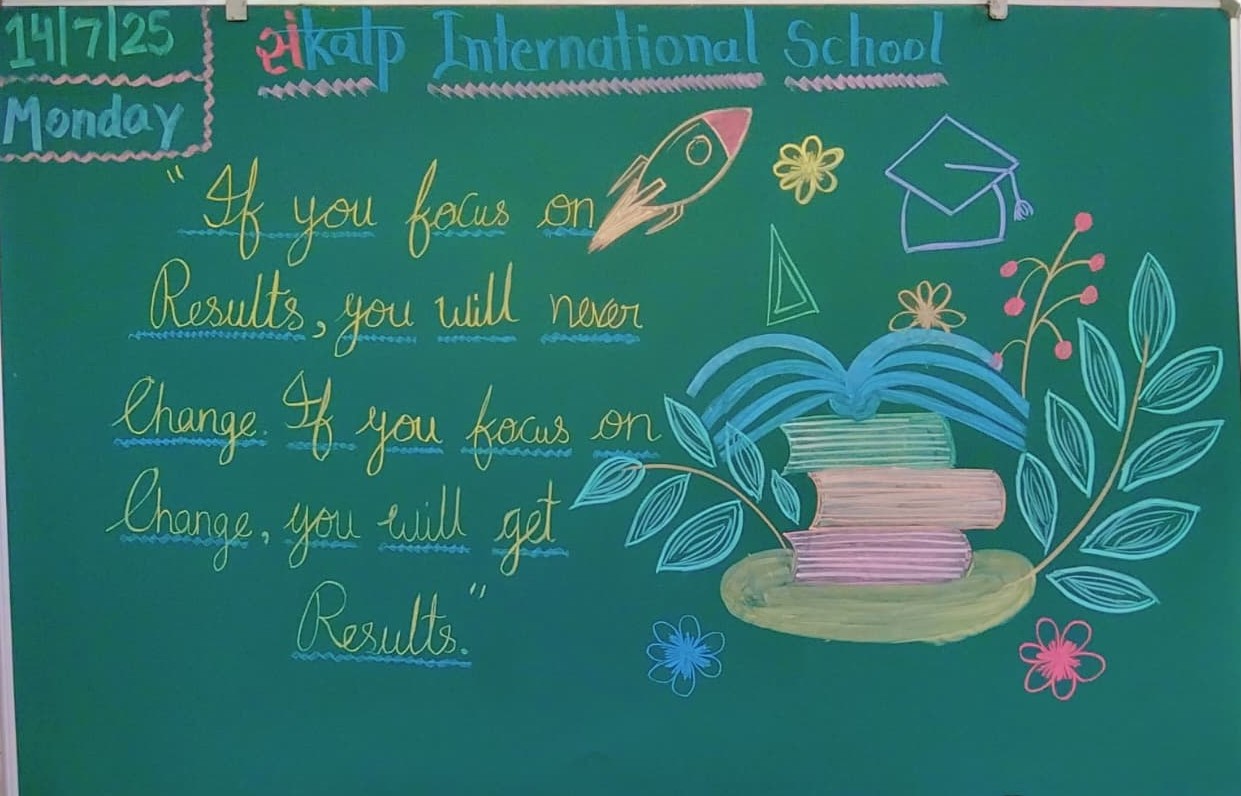 14/7/25
Monday
संkalp International School
"If you focus on
Results, you will never
Change. If you focus on
Change, you will get
Results."